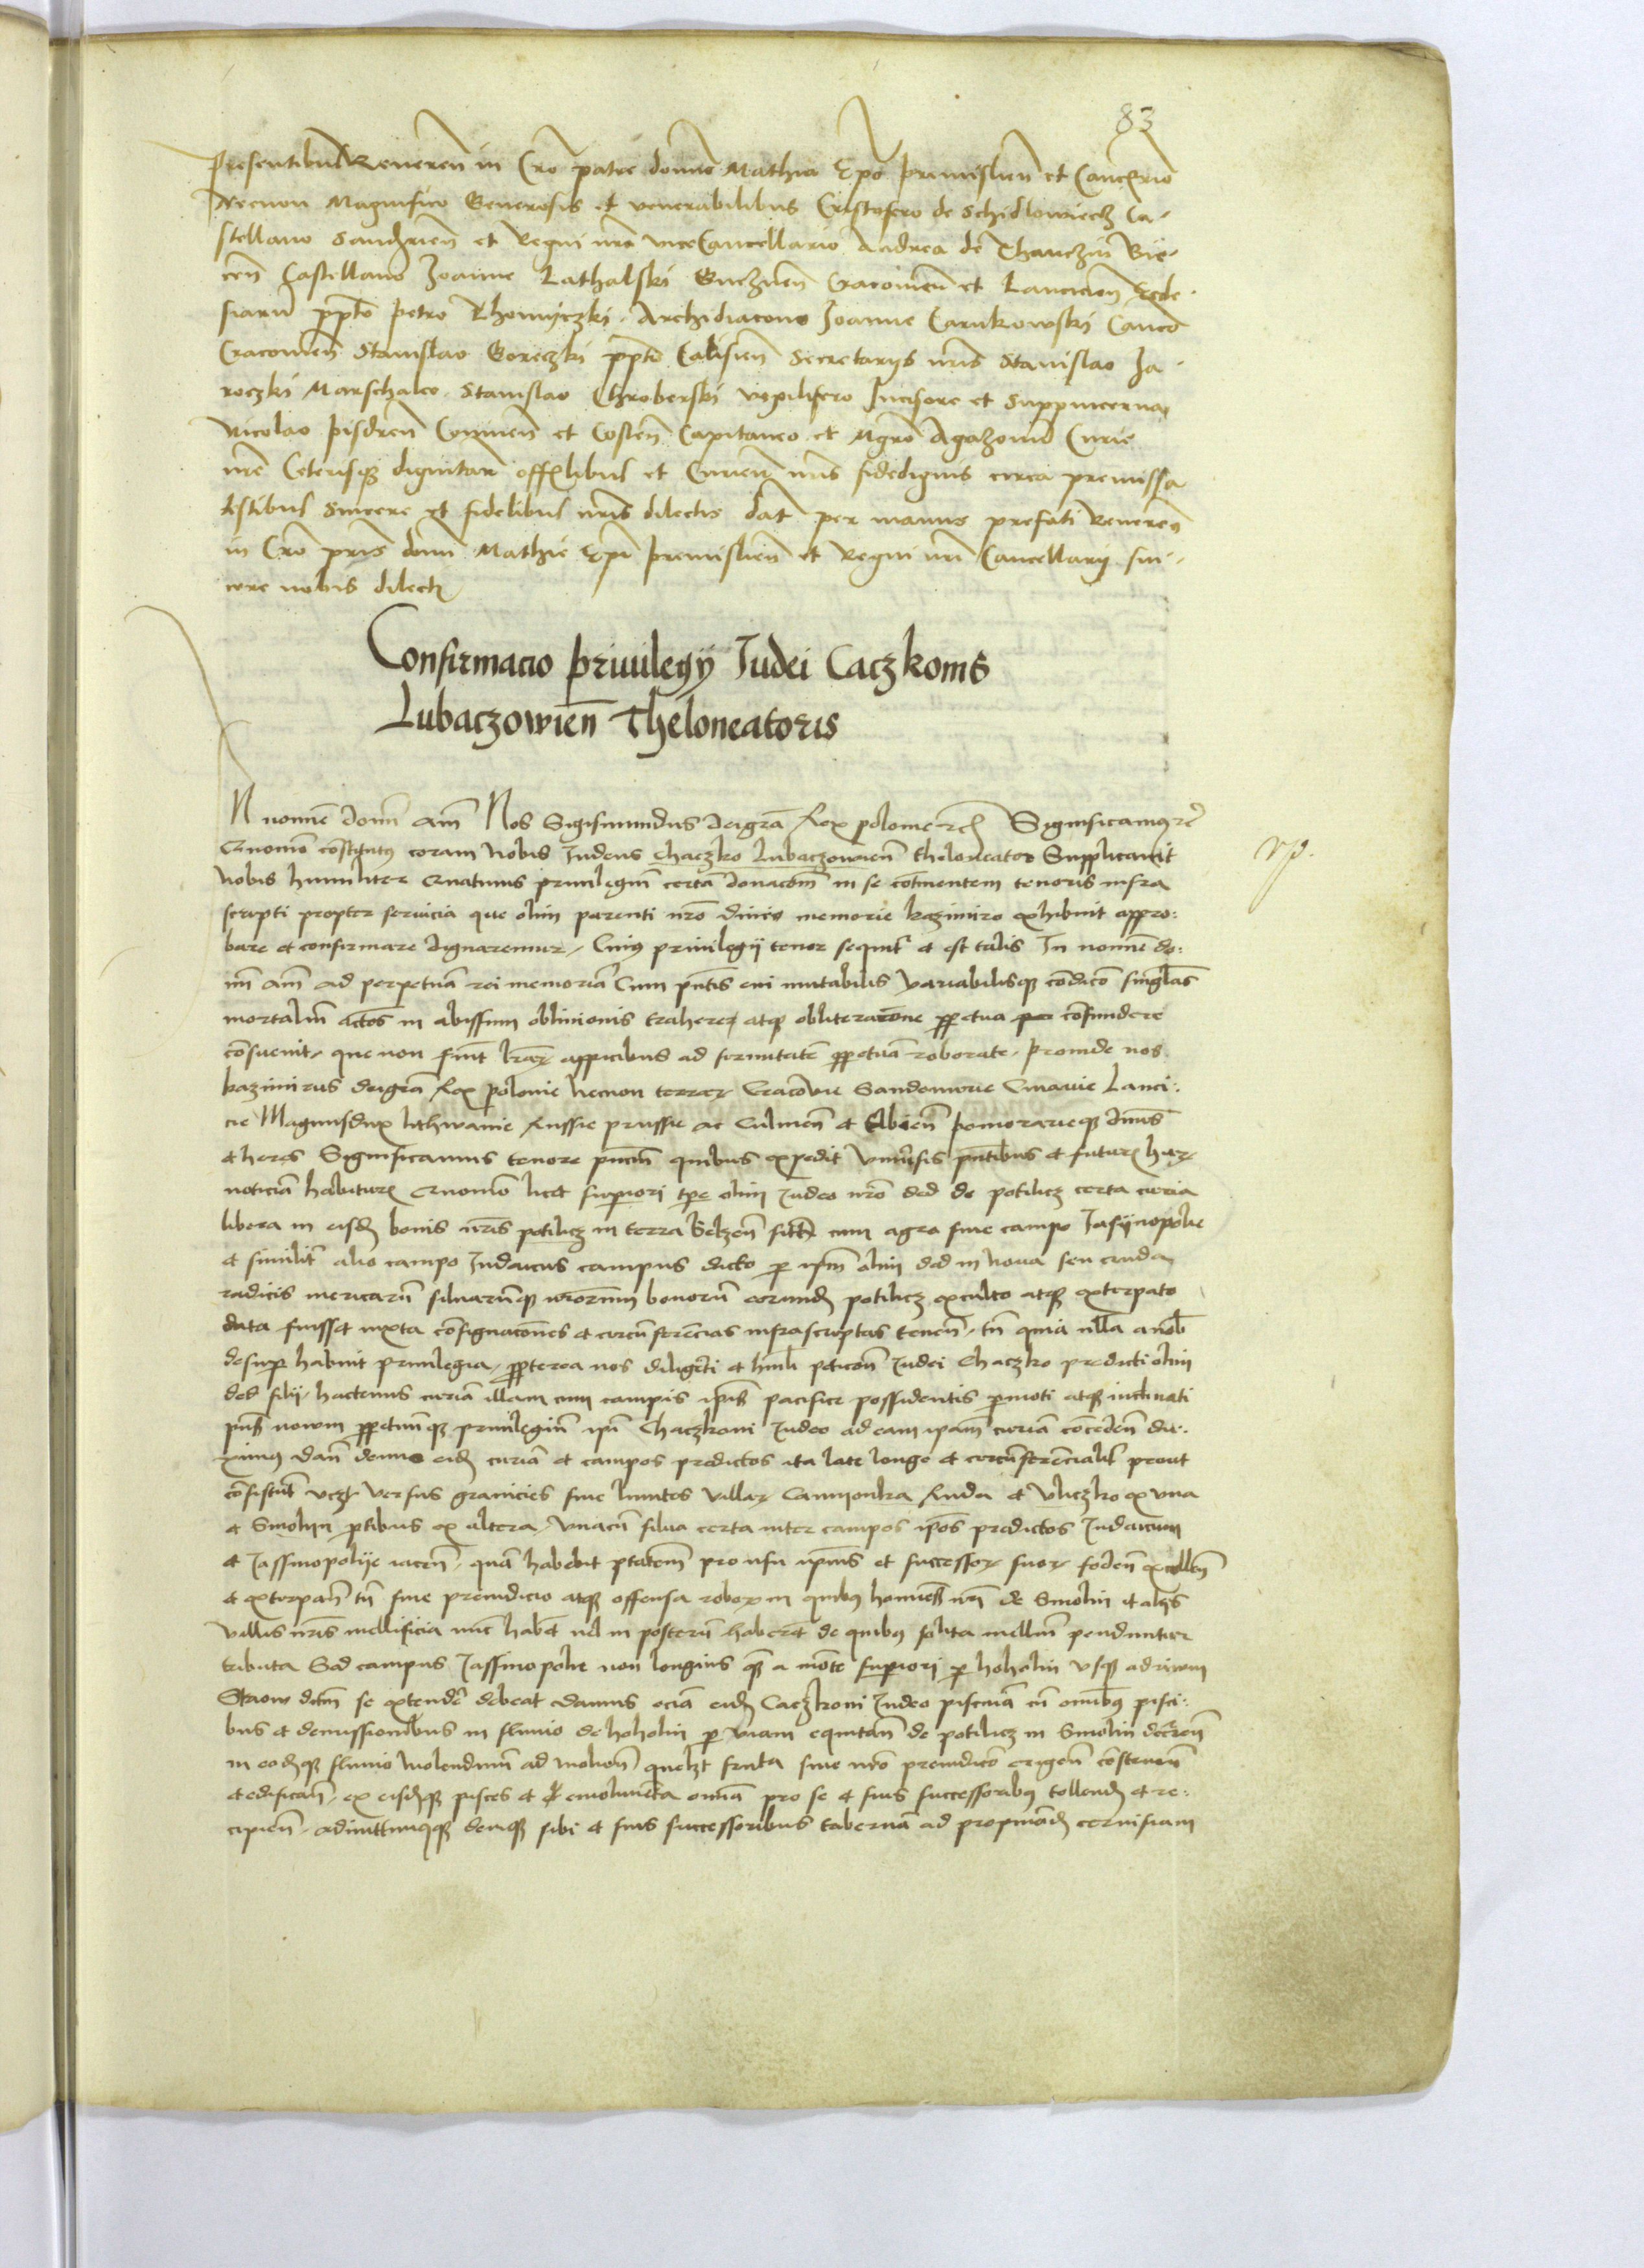 83
Presentibus Reveren in Cro patre domino Mathia Epo Premislien et Cancellario
Necnon Magnifico Generosis et venerabilibus Cristofero de Schidlowiecz Ca-
stellano Sandomirien et Regni nri viceCancellario Andrea de Thanczin Bie-
cen Castellano Joanne Lathalski Gneznen Cracovien et Lancicien Eccle-
siarum ppto Petro Thomyczki Archidiacono Joanne Carnkowski Canco
Cracovien Stanislao Goreczki ppto Calisien Secretarys nris Stanislao Ja-
roczki Marschalco Stanislao Chroberski vexilifero Incisore et Suppincerna
Nicolao Pisdren Coninen et Costen Capitaneo et Mgro Agazonum Curie
nre Ceterisq dignitar offilibus et Curien nris fidedignis circa premissa
testibus Sincere et fidelibus nris dilectis dat per manus prefati Reveren
in Cro pris domini Mathie Epi Premislien et Regni nri Cancellary sin-
cere nobis dilecti
Confirmacio privilegij Judei Caczkonis
Lubaczowien Theloneatoris
In nomine domini amen Nos Sigismundus dei gra Rex Polonie etc Significamus etc
Quomodo constitutus coram nobis Judeus Chaczko Lubaczowien theloneator Supplicavit
nobis humiliter Quatinus privilegium certam donacionem in se continentem tenoris infra
scripti propter servicia que olim parenti nro divo memorie kazimiro exhibuit appro:
bare et confirmare dignaremur, Cuius privilegij tenor sequitur et est talis In nomine do:
mini amen ad perpetuam rei memoriam Cum pntis evi mutabilis variabilisq condicio singulas
mortalium actos in abissum oblivionis trahere atq obliteracione perpetua confundere
consuevit, que non sunt lrarum appicibus ad firmitatem perpetuam roborate, Proinde nos
kazimirus dei gra Rex Polonie necnon terrarum Cracovie Sandomirie Cuiavie Lanci:
cie Magnusdux lithwanie Russie prussie ac Culmen et Elbien Pomoranieq dnus
et heres Significamus tenore pncium quibus expedit universis pntibus et futuris harum
noticiam habituris Quomodo licet superiori tpe olim Judeo nro ded de potilicz certa curia
libera in eisdem bonis nris potilicz in terra Belzen sitis cum agro sive campo Jasijnopolie
et similiter alio campo Judaicus campus dicto per ipsum olim ded in nova seu cruda
radicis mericarum silvarumq nrorum bonorum eorundem potilicz exculto atq extirpato
data fuisset iuxta consignaciones et circumferencias infrascriptas tenen, tn quia nulla a nob
desuper habuit privilegia, propterea nos diligenti et humili peticione Judei Chaczko predicti olim
ded filij, hactenus curiam illam cum campis ipsis pacifice possidentis permoti atq inclinati
pns novum perpetuumq privilegium ipsi Chaczkoni Judeo ad eam ipsam curiam conceden dux:
ximus dan demus eidem curiam et campos predictos ita late longe et circumferencialiter prout
consistunt versus granicies sive limites villarum Camijonka Ruda et Uliczko ex una
et Smolijn partibus ex altera, unacum silva certa inter campos ipsos predictos Judaicum
et Jassinopolije iacen, quam habebit ptatem pro usu ipsius et successorum suorum foden excollen
et extirpan tn sine preiudicio atq offensa roborum in quibus homines nri de Smolin et alijs
villis nris mellificia nunc habent vel in posterum haberent de quibus solita mellium penduntur
tributa Sed campus Jassinopolie non longius quam a monte superiori per hoholin usq ad rivum
Starow dictum se extendere debeat damus eciam eidem Caczkoni Judeo piscinam cum omnibus pisci:
bus et demissionibus in fluvio de hoholin per viam equitan de potilicz in Smolin
in eodemq fluvio molendinum ad molien quelibet fruta sine nro preiudicio erigen construen
et edifican, ex eisdemq pisces et emolumenta omnia pro se et suis successoribus tollendi et re:
cipien, admittimusq demq sibi et suis successoribus tabernam ad propinandum cervisiam